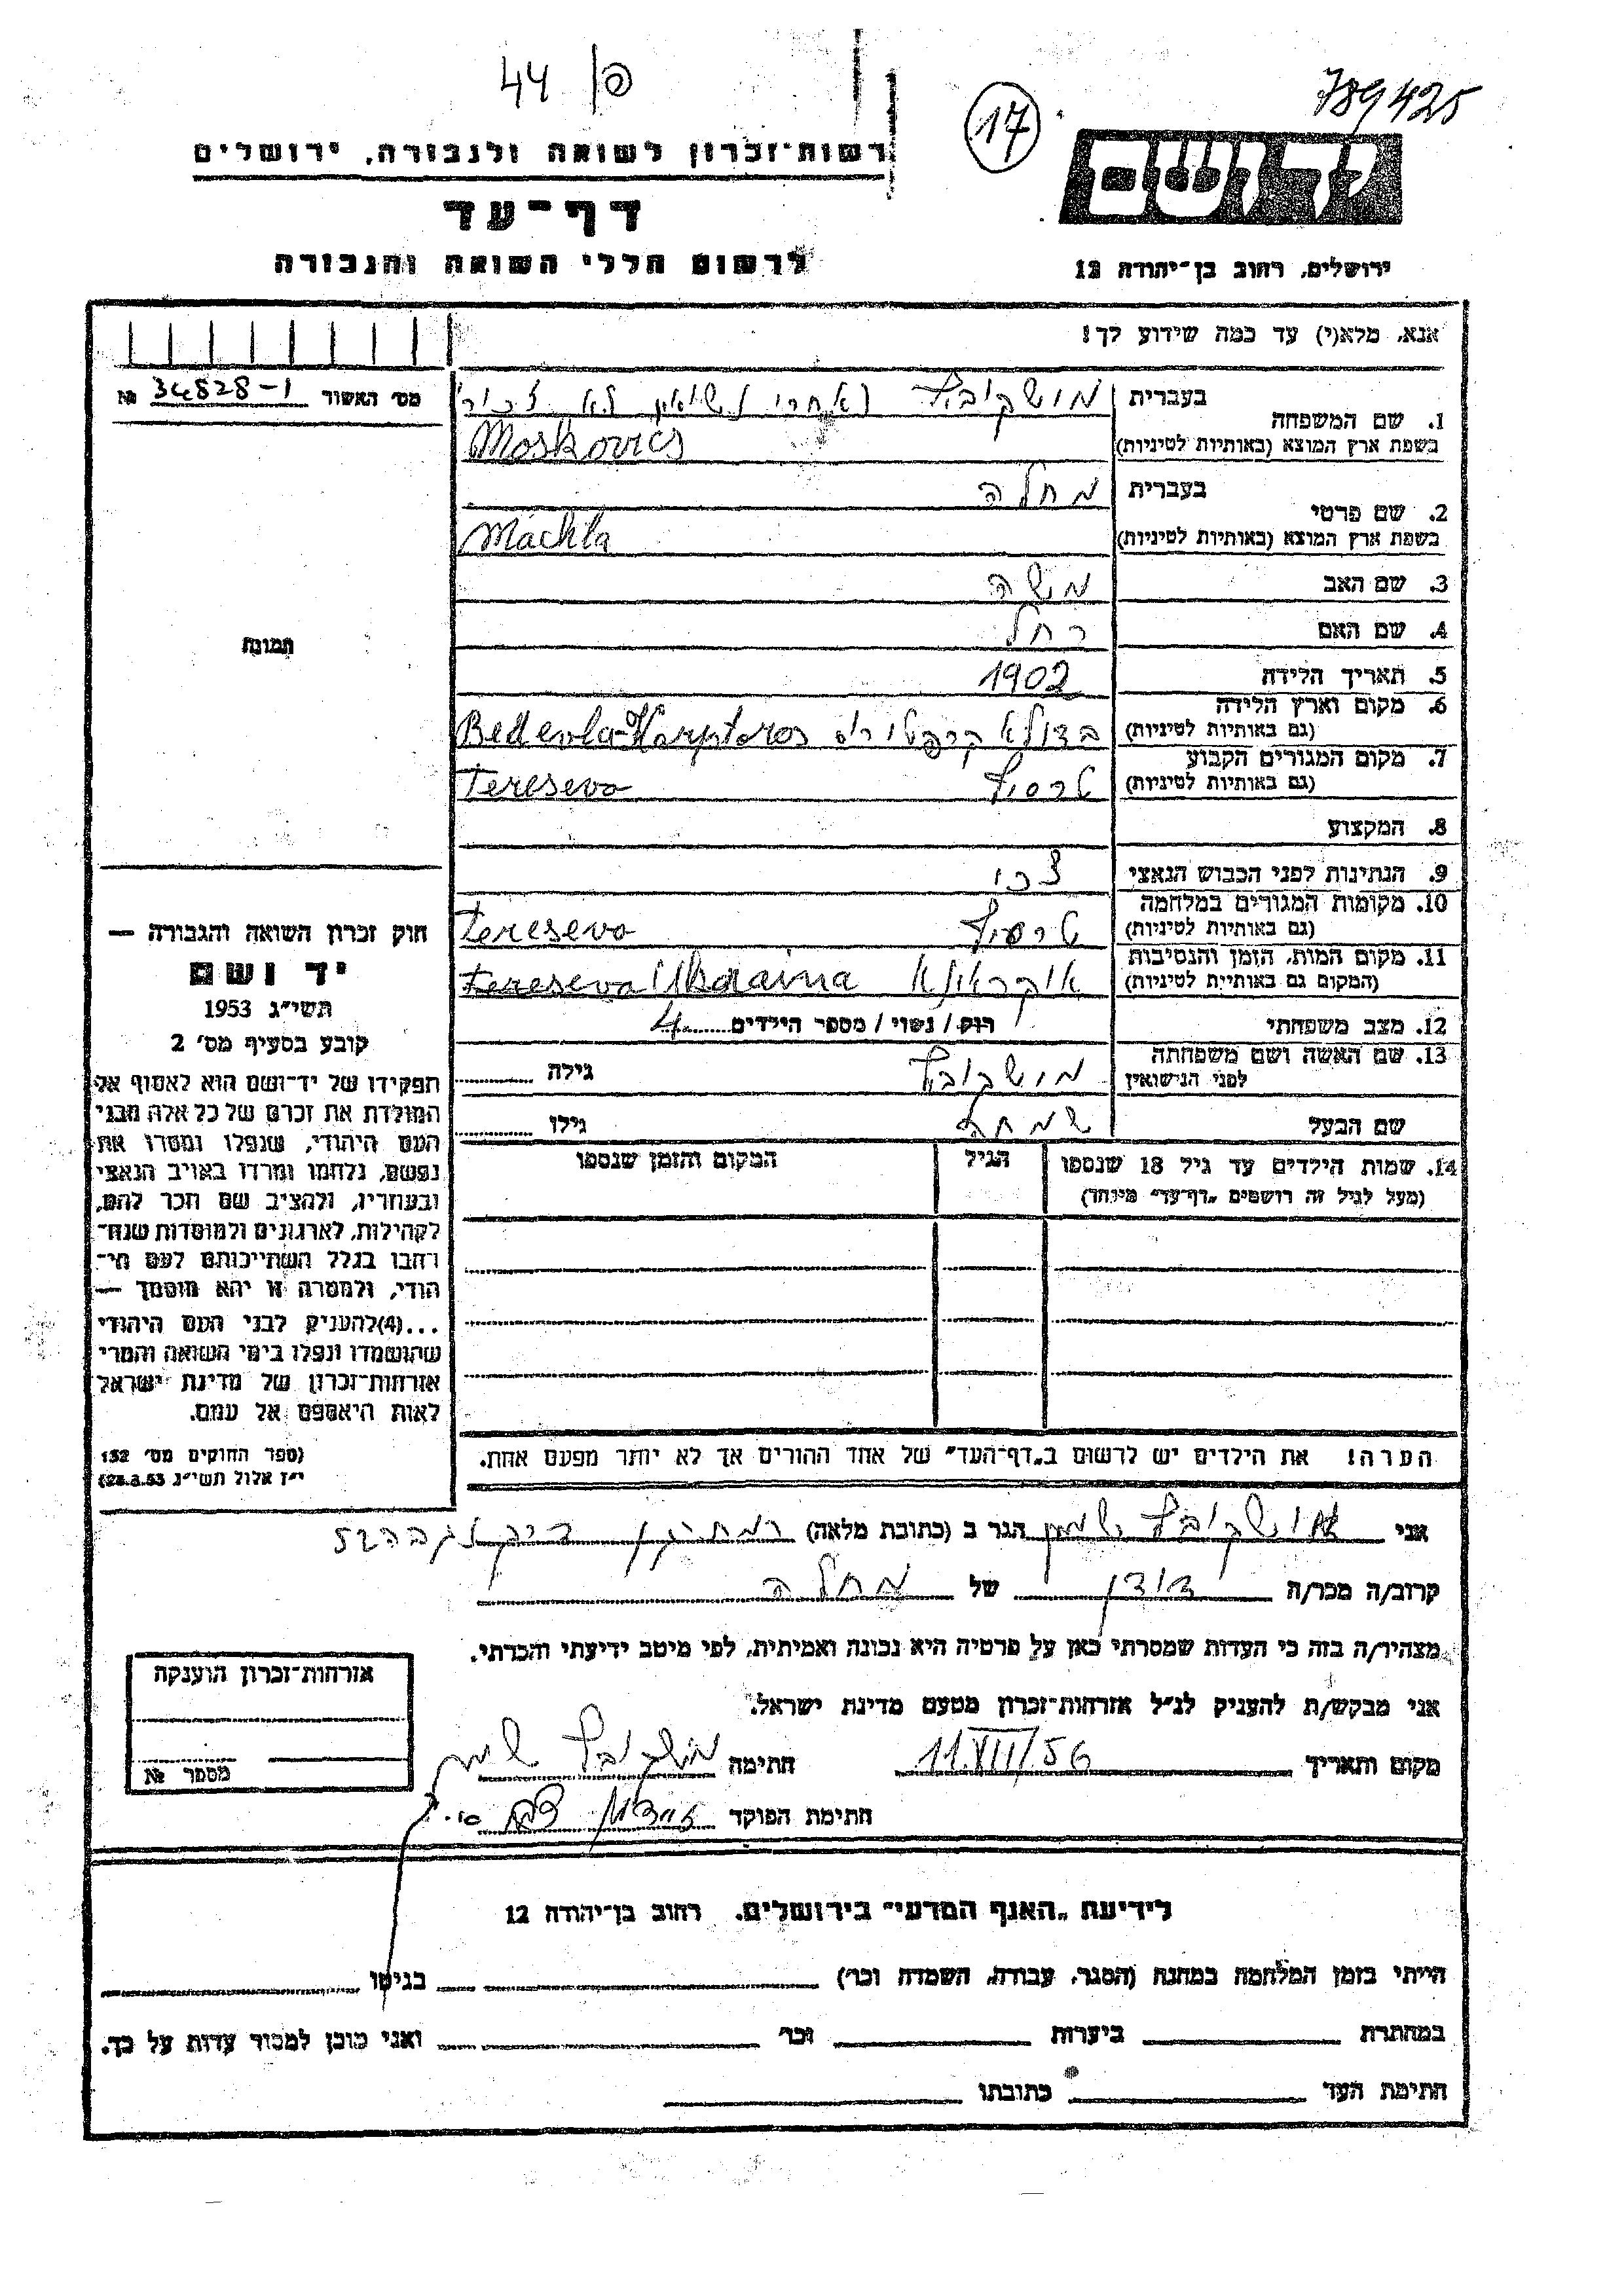 44 /פ
17
789425
רשות־זכרון לשואה ולגבורה, ירושלים
דף־עד
לרשום חללי השואה והגבורה
יד ושם
ירושלים, רחוב בן־יהודה 12
אנא, מלא(י) עד כמה שידוע לך!
מס׳ האשור 34828-1 №
1. שם המשפחה
בעברית מושקוביץ (אחרי נשואין לא זכור)
בשפת ארץ המוצא (באותיות לטיניות) Moskovics
2. שם פרטי
בעברית מחלה
בשפת ארץ המוצא (באותיות לטיניות) Machla
3. שם האב משה
4. שם האם רחל
5. תאריך הלידה 1902
6. מקום וארץ הלידה
(גם באותיות לטיניות) בדולא קרפטורוס Bedevla-Karptoros
7. מקום המגורים הקבוע
(גם באותיות לטיניות) טרסיף Tereseva
8. המקצוע
9. הנתינות לפני הכבוש הנאצי צכי
10. מקומות המגורים במלחמה
(גם באותיות לטיניות) טרסיף Tereseva
11. מקום המות, הזמן והנסיבות
(המקום גם באותיות לטיניות) אוקראינא Tereseva Ukraina
12. מצב משפחתי רוק/ נשוי/ מספר הילדים 4
13. שם האשה ושם משפחתה
לפני הנישואין מושקוביץ גילה
שם הבעל שמחה גילו
14. שמות הילדים עד גיל 18 שנספו
(מעל לגיל זה רושמים „דף־עד״ מיוחד)
הגיל
המקום והזמן שנספו
הערה! את הילדים יש לרשום ב„דף־העד״ של אחד ההורים אך לא יותר מפעם אחת.
תמונה
חוק זכרון השואה והגבורה —
יד ושם
תשי״ג 1953
קובע בסעיף מס׳ 2
תפקידו של יד־ושם הוא לאסוף אל
המולדת את זכרם של כל אלה מבני
העם היהודי, שנפלו ומסרו את
נפשם, נלחמו ומרדו באויב הנאצי
ובעוזריו, ולהציב שם וזכר להם,
לקהילות, לארגונים ולמוסדות שנח־
רבו בגלל השתייכותם לעם הי־
הודי, ולמטרה זו יהא מוסמך —
...(4)להעניק לבני העם היהודי
שהושמדו ונפלו בימי השואה והמרי
אזרחות־זכרון של מדינת ישראל
לאות היאספם אל עמם.
(ספר החוקים מס׳ 132
י״ז אלול תשי״ג 28.8.53)
אני מושקוביץ שמעון הגר ב (כתובת מלאה)
קרוב/ה מכר/ה דודן של מחלה
מצהיר/ה בזה כי העדות שמסרתי כאן על פרטיה היא נכונה ואמיתית, לפי מיטב ידיעתי והכרתי.
אני מבקש/ת להעניק לנ״ל אזרחות־זכרון מטעם מדינת ישראל.
מקום ותאריך 11.XII/56 חתימה מושקוביץ שמעון
חתימת הפוקד
אזרחות־זכרון הוענקה
מספר №
לידיעת „האגף המדעי״ בירושלים, רחוב בן־יהודה 12
הייתי בזמן המלחמה במחנה (הסגר, עבודה, השמדה וכו׳) בגיטו
במחתרת ביערות וכו׳ ואני מוכן למסור עדות על כך.
חתימת העד כתובתו